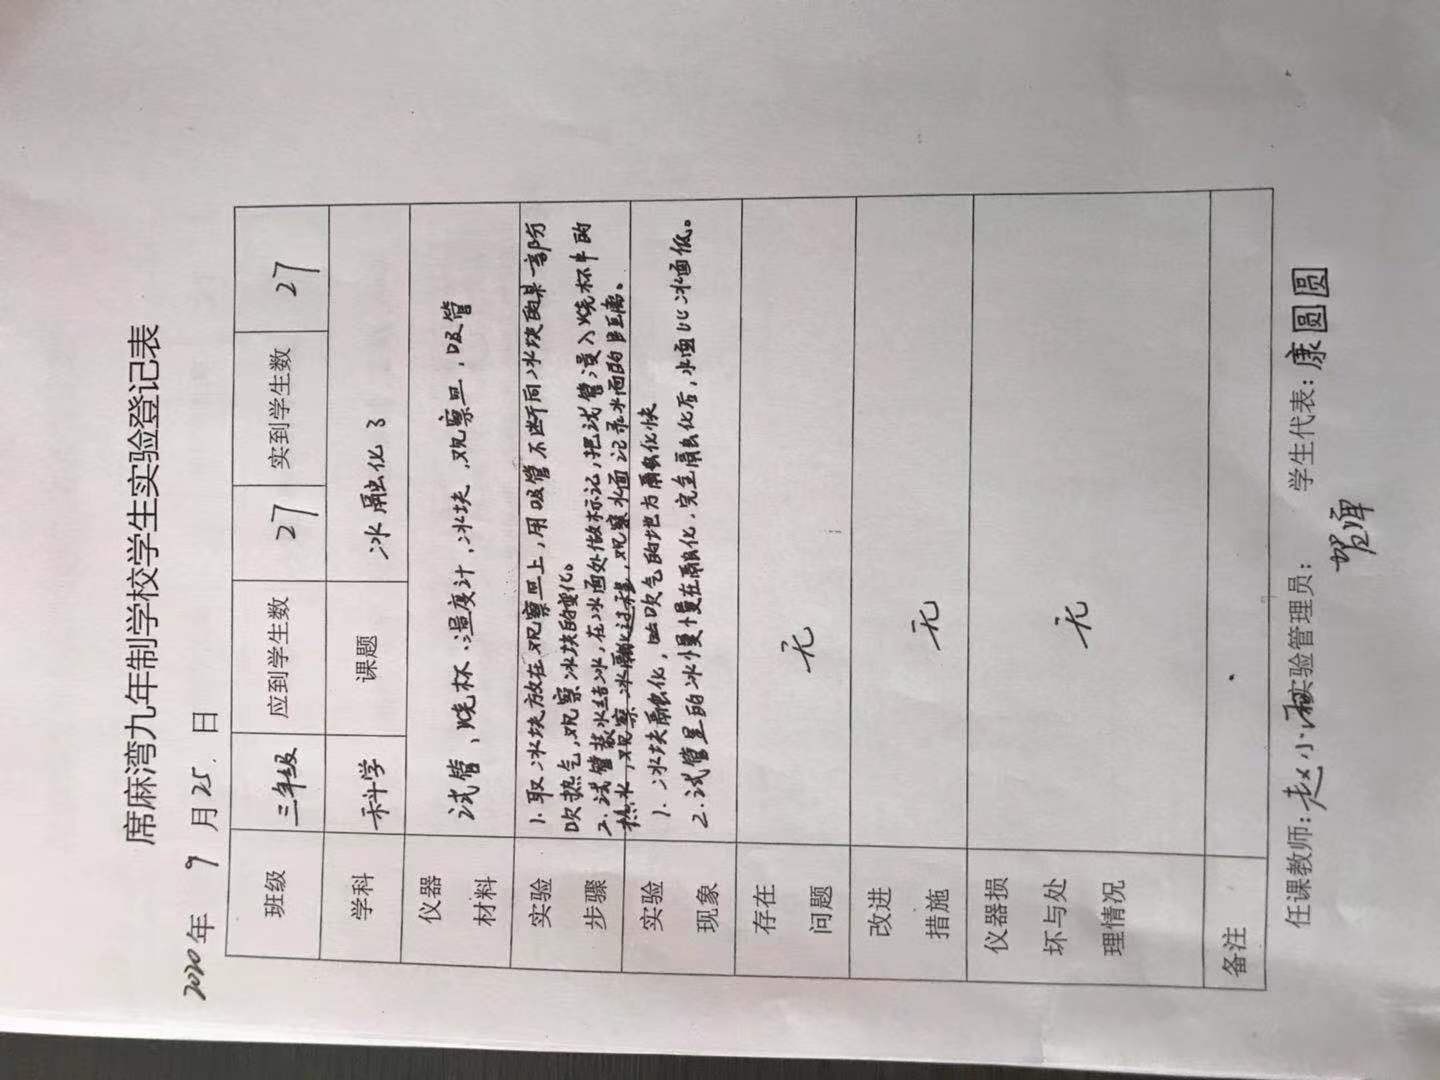 席麻湾九年制学校学生实验登记表
2020年 9 月 25. 日
班级 三年级 应到学生数 27 实到学生数 27
学科 科学 课题 冰融化了
仪器材料 试管、烧杯、温度计、冰块、观察皿、吸管
实验步骤
1. 取冰块放在观察皿上,用吸管不断向冰块的某一部分
吹热气,观察冰块的变化。
2. 试管装水结冰,在冰面处做标记,把试管浸入烧杯中的
热水,观察冰融化过程,观察水面记录水面的距离。
实验现象
1. 冰块融化,吹气的地方融化快
2. 试管里的冰慢慢在融化,完全融化后,水面比冰面低。
存在问题 无
改进措施 无
仪器损坏与处理情况 无
备注
任课教师:赵小 实验管理员: 学生代表:康圆圆